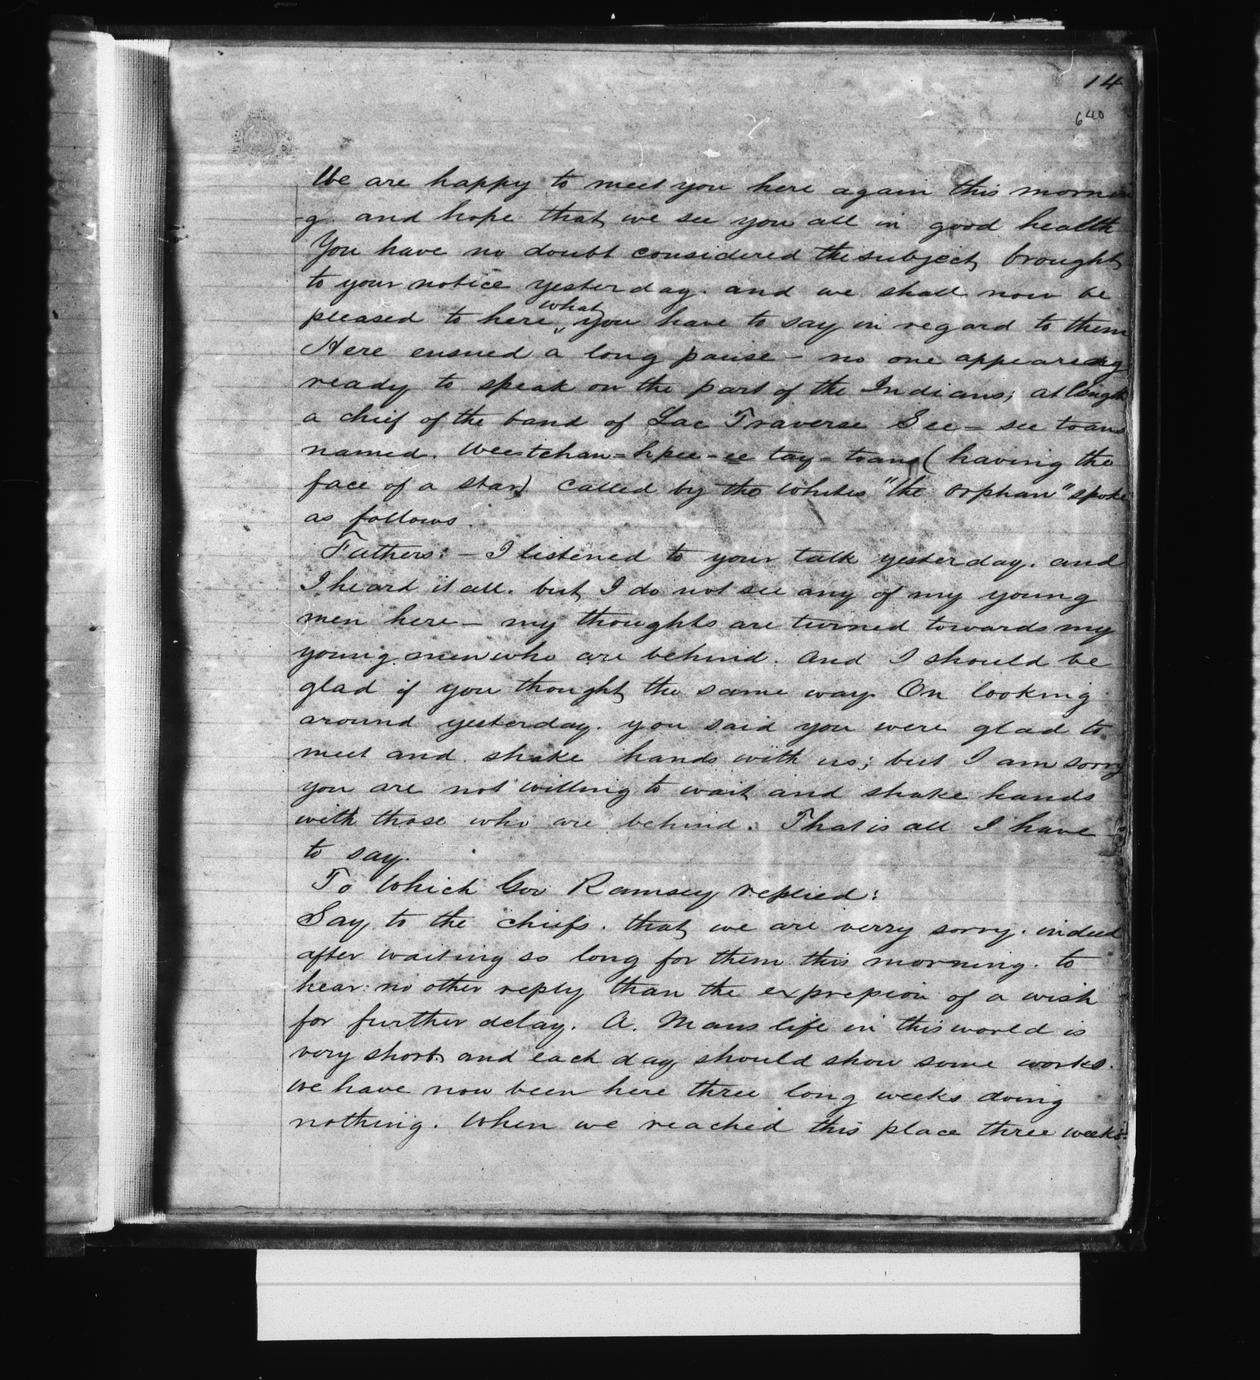 14
640
We are happy to meet you here again this mornin
-g. and hope that we see you all in good health
You have no doubt considered the subject brought
to your notice yesterday. and we shall now be
pleased to here what you have to say in regard to them
Here ensued a long pause - no one appeared
ready to speak on the part of the Indians; at length
a chief of the band of Lac Traverse See - see toans
named. Wee-tchan-hpee-ee tay-toans (having the
face of a star) called by the whites "the Orphan" spoke
as follows.
Fathers: - I listened to your talk yesterday. and
I heard it all. but I do not see any of my young
men here - my thoughts are turned towards my
young men who are behind. and I should be
glad if you thought the same way. On looking
around yesterday. you said you were glad to
meet and shake hands with us; but I am sorry
you are not willing to wait and shake hands
with those who are behind. That is all I have
to say.
To Which Gov Ramsey replied:
Say to the chiefs. that we are verry sorry. indeed
after waiting so long for them this morning. to
hear no other reply than the expression of a wish
for further delay. A. Mans life in this world is
very short and each day should show some works.
We have now been here three long weeks doing
nothing. When we reached this place three weeks